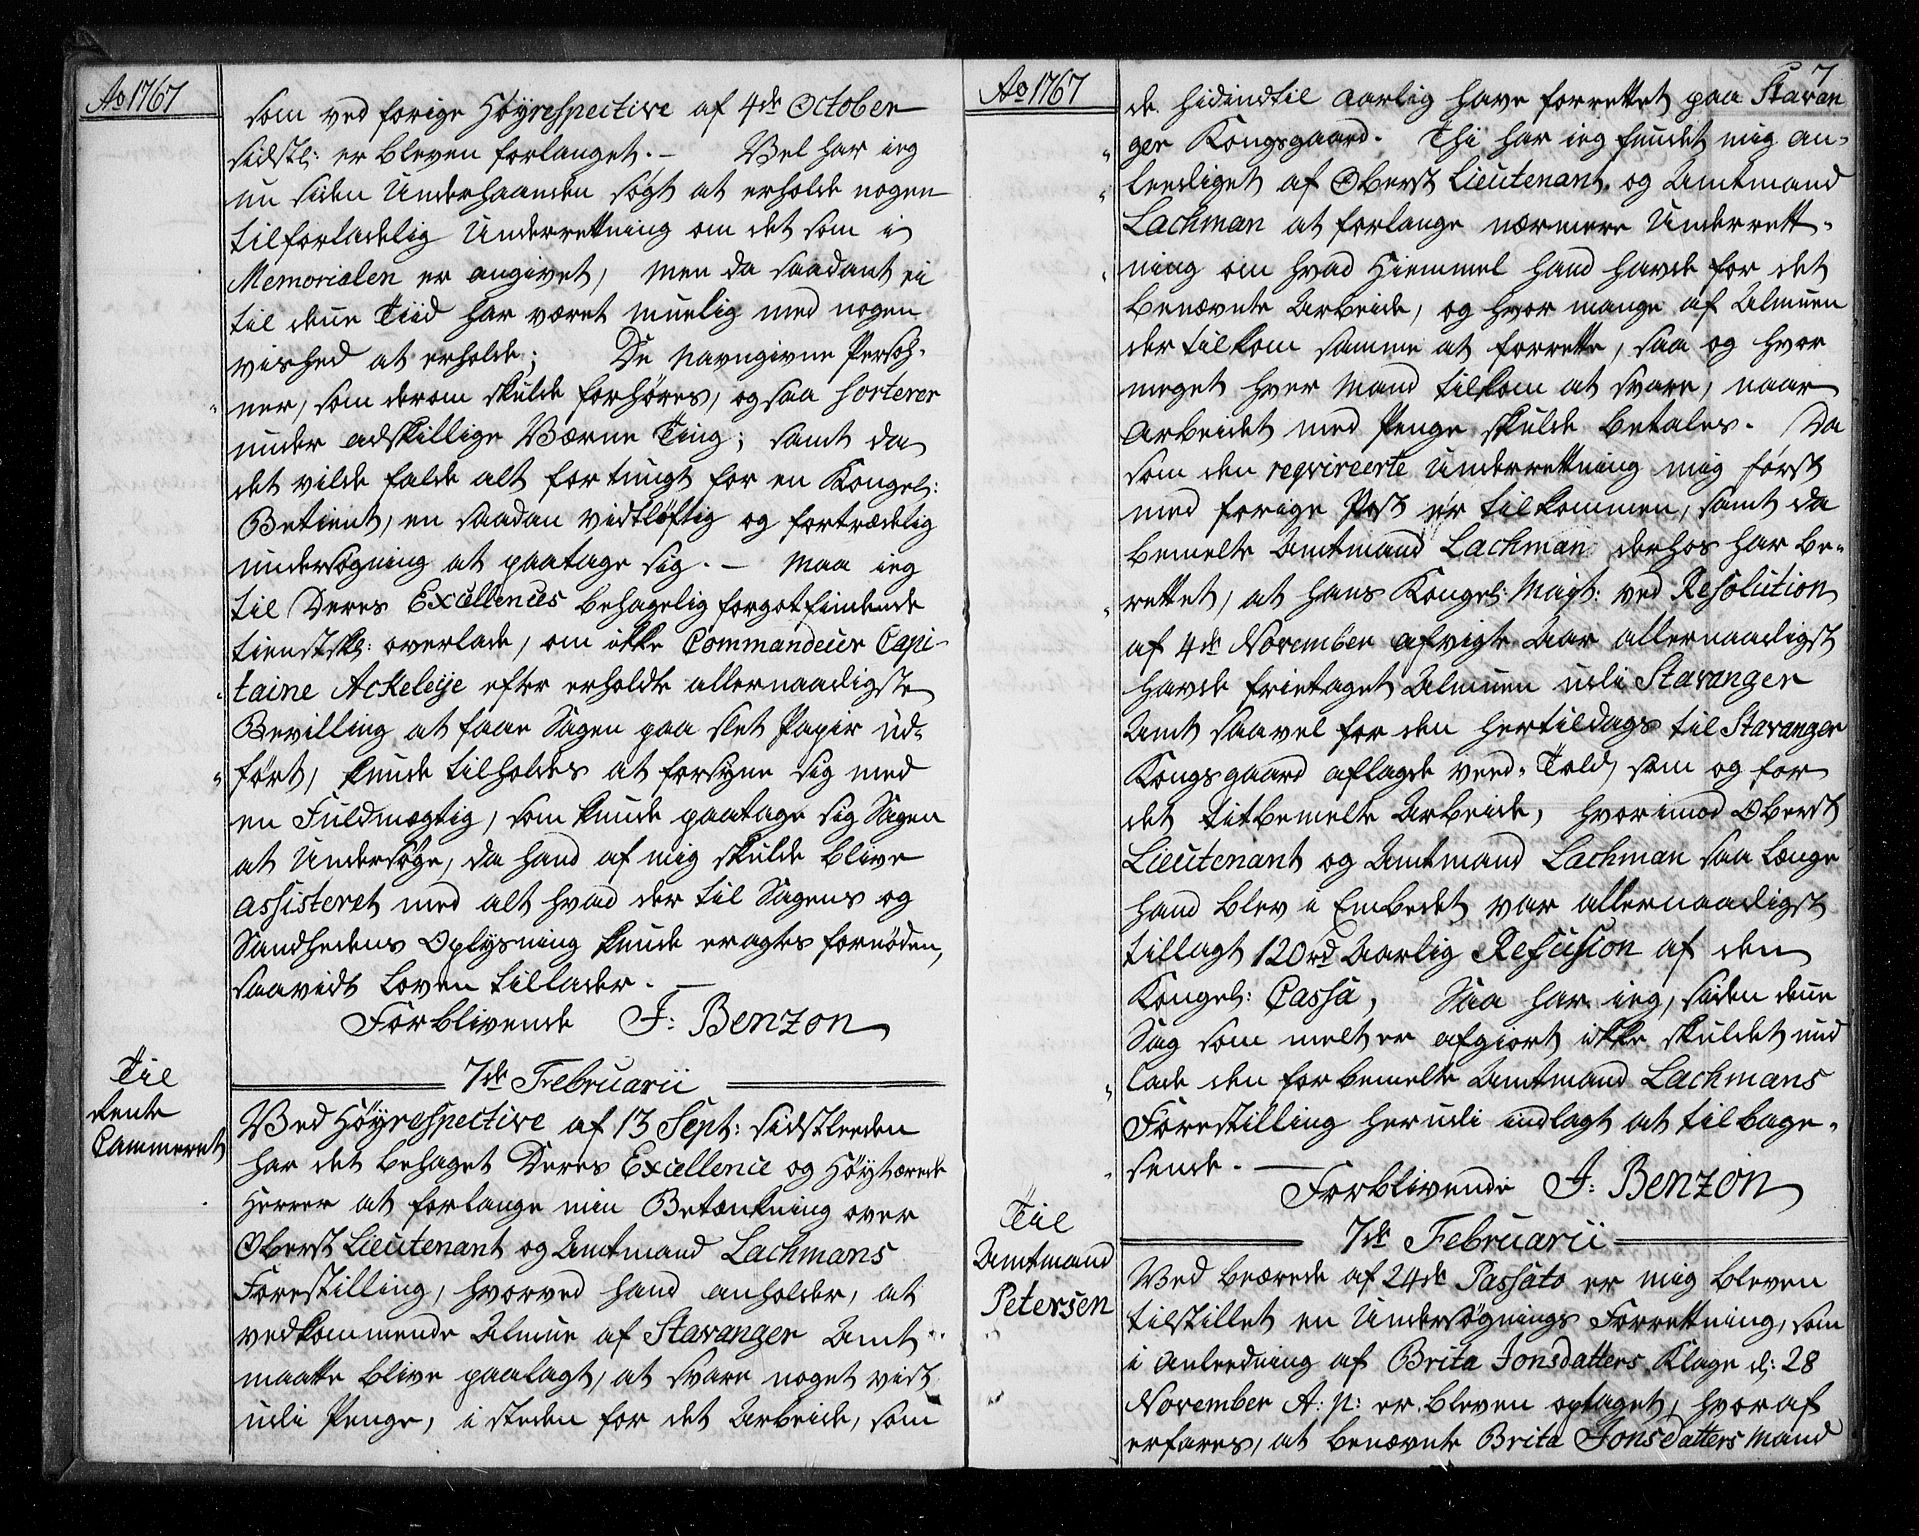 Ao 1767
som ved forige Høyrespective af 4de October
sidstl: er bleven forlanget. – Vel har ieg
nu siden Underhaanden søgt at erholde nogen
tilforladelig Underrettning om det som i
Memorialen er angivet, men da saadant ei
til denne Tiid har været muelig med nogen
vished at erholde; De Navngivne Persoh-
ner, som derom skulde forhøres, og saa sorterer
under adskillige Værne Ting; samt da
det vilde falde alt for tungt for en Kongel:
Betient, en saadan vidtløftig og fortrædelig
undersøgning at paatage sig. – Maa ieg
til Deres Excellences behagelig forgotfindende
tienstskl: overlade, om ikke Commandeur Capi-
taine Ackeleije efter erholdte allernaadigste
Bevilling at faae Sagen paa slet Papir ud-
ført, kunde tilholdes at forsyne sig med
en Fuldmegtig, som kunde paatage sig Sagen
at Undersøge, da hand af mig skulde blive
assisteret med alt hvad der til Sagens og
Sandhedens Oplysning kunde eragtes fornøden,
saavidt Loven tillader. –
Forblivende J: Benzon
7de Februarii
Til
Rente
Cammeret
Ved Høyrespective af 13 Sept: sidstleeden
har det behaget Deres Excellence og Høystærede
Herrer at forlange min Betænkning over
Oberst Lieutenant og Amtmand Lachmans
Forestilling, hvorved hand anholder, at
vedkommende Almue af Stavanger Amt
maatte blive paalagt, at svare noget vist
udi Penge, i steden for det Arbeide, som
Ao 1767
7
de hidindtil Aarlig have forrettet paa Stavan
ger Kongsgaard. Thi har ieg fundet mig an-
leediget af Oberst Lieutenant og Amtmand
Lachman at forlange nærmere Underrett-
ning om hvad Hiemmel hand havde for det
benævnte Arbeide, og hvor mange af Almuen
der tilkom samme at forrette, saa og hvor
meget hver Mand tilkom at svare, naar
Arbeidet med Penge skulde betales. Da
som den reqvireerte Underrettning mig først
med forige Post er tilkommen, samt da
bemelte Amtmand Lachman derhos har be-
rettet, at hans Kongel: Mayt: ved Resolution
af 4de November afvigte Aar allernaadigst
havde frietaget Almuen udi Stavanger
Amt saavel for den hertildags til Stavanger
Kongsgaard aflagde veed-Told, som og for
det titbemelte Arbeide, hvorimod Oberst
Lieutenant og Amtmand Lachman saa længe
hand blev i Embedet var allernaadigst
tillagt 120 rd Aarlig Refusion af den
Kongel: Cassa, Saa har ieg, siden denne
Sag som melt er afgiort ikke skuldet und
lade den forbemelte Amtmand Lachmans
Forestilling herudi indlagt at tilbage-
sende. –
Forblivende J: Benzon
7de Februarii
Til
Amtmand
Petersen
Ved beærede af 24de Passato er mig bleven
tilstillet en Undersøgnings Forrettning, som
i Anleedning af Brita Jonsdatters Klage d: 28
November A: p: er bleven optaget, hvoraf
erfares, at benævnte Brita Jonsdatters Mand